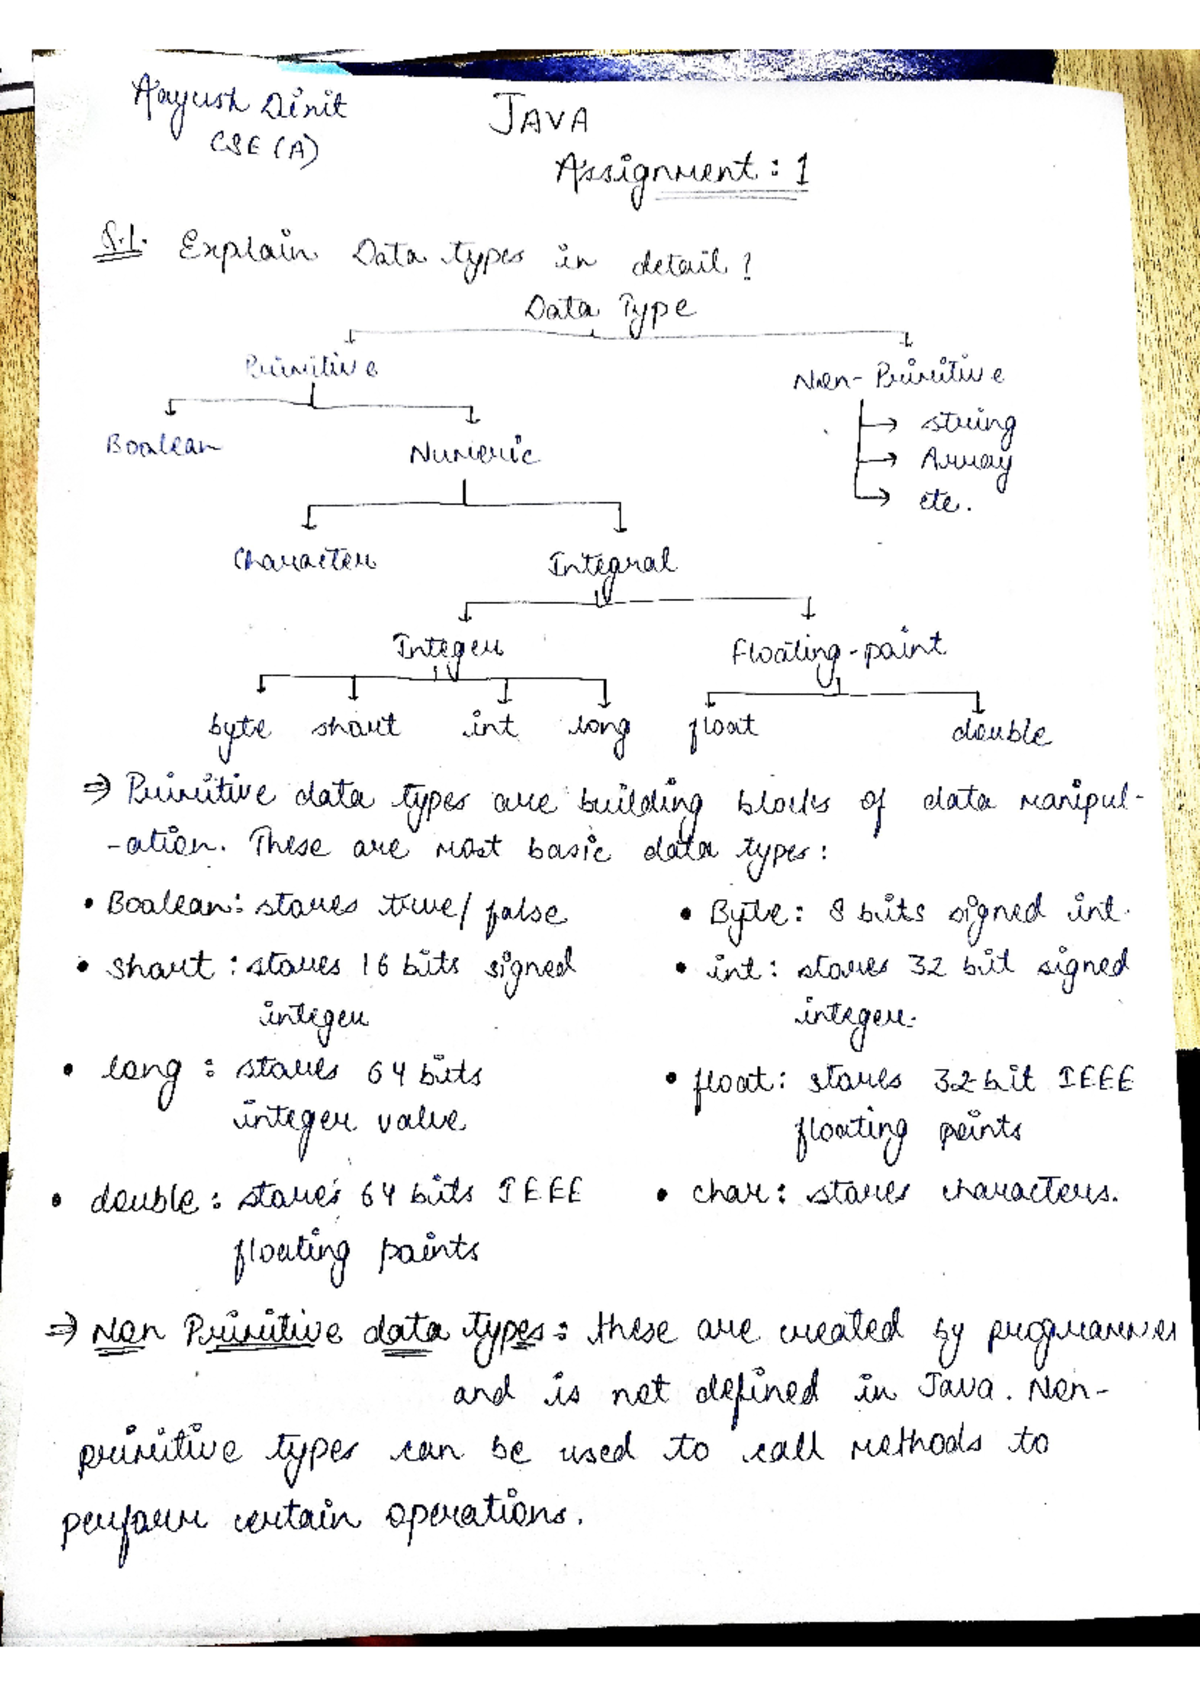 Aayush Dixit
CSE (A)
JAVA
Assignment : 1
Q.1. Explain Data types in detail ?
Data Type
Primitive
Non-Primitive
Boolean
Numeric
→ string
→ Array
→ etc.
Character
Integral
Integer
Floating-point
byte short int long float double
⇒ Primitive data types are building blocks of data manipul-
-ation. These are most basic data types :
• Boolean : stores true / false
• Byte : 8 bits signed int.
• short : stores 16 bits signed
integer
• int : stores 32 bit signed
integer.
• long : stores 64 bits
integer value
• float : stores 32-bit IEEE
floating points
• double : stores 64 bits IEEE
floating points
• char : stores characters.
⇒ Non Primitive data types : these are created by programmer
and is not defined in Java. Non-
primitive types can be used to call methods to
perform certain operations.